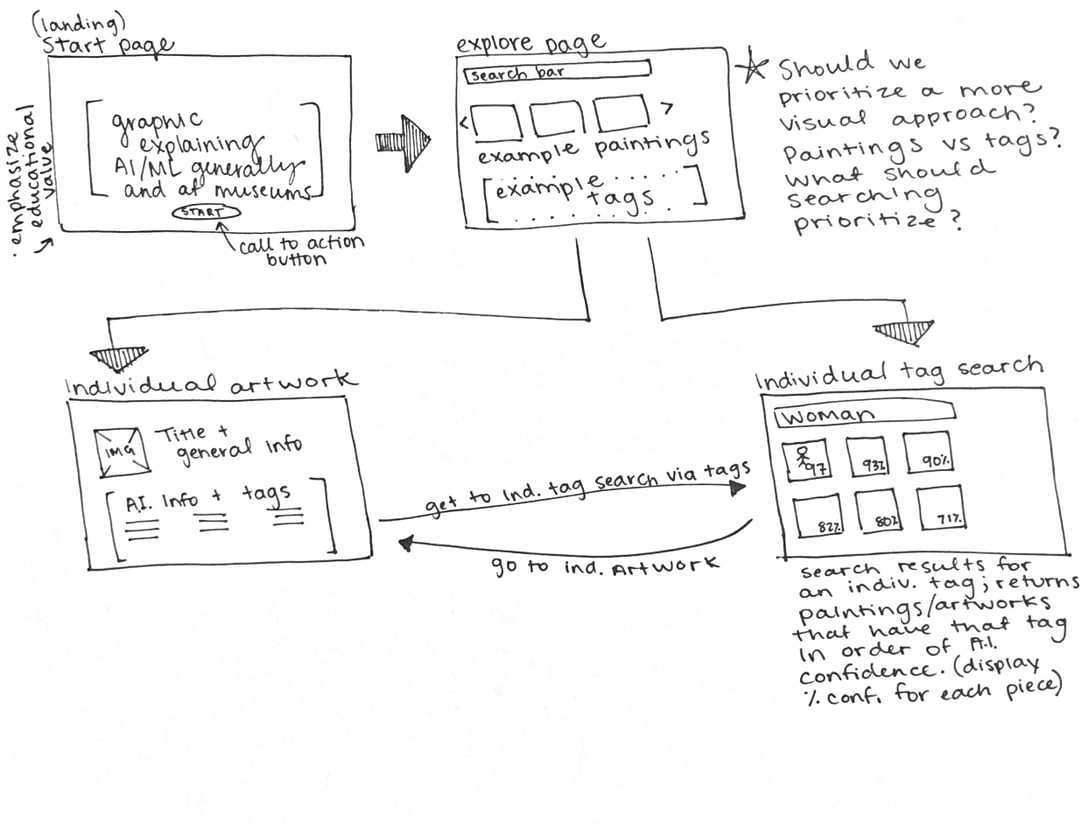 (landing)
Start page
• emphasize
educational
value
graphic
explaining
AI/ML generally
and at museums
START
call to action
button
explore page
search bar
< >
example paintings
example
tags
Should we
prioritize a more
visual approach?
Paintings vs tags?
What should
searching
prioritize?
Individual artwork
IMG
Title +
general info
A.I. Info + tags
get to ind. tag search via tags
go to ind. Artwork
Individual tag search
WOMAN
97 93% 90%
82% 80% 71%
search results for
an indiv. tag; returns
paintings/artworks
that have that tag
in order of A.I.
confidence. (display
% conf. for each piece)